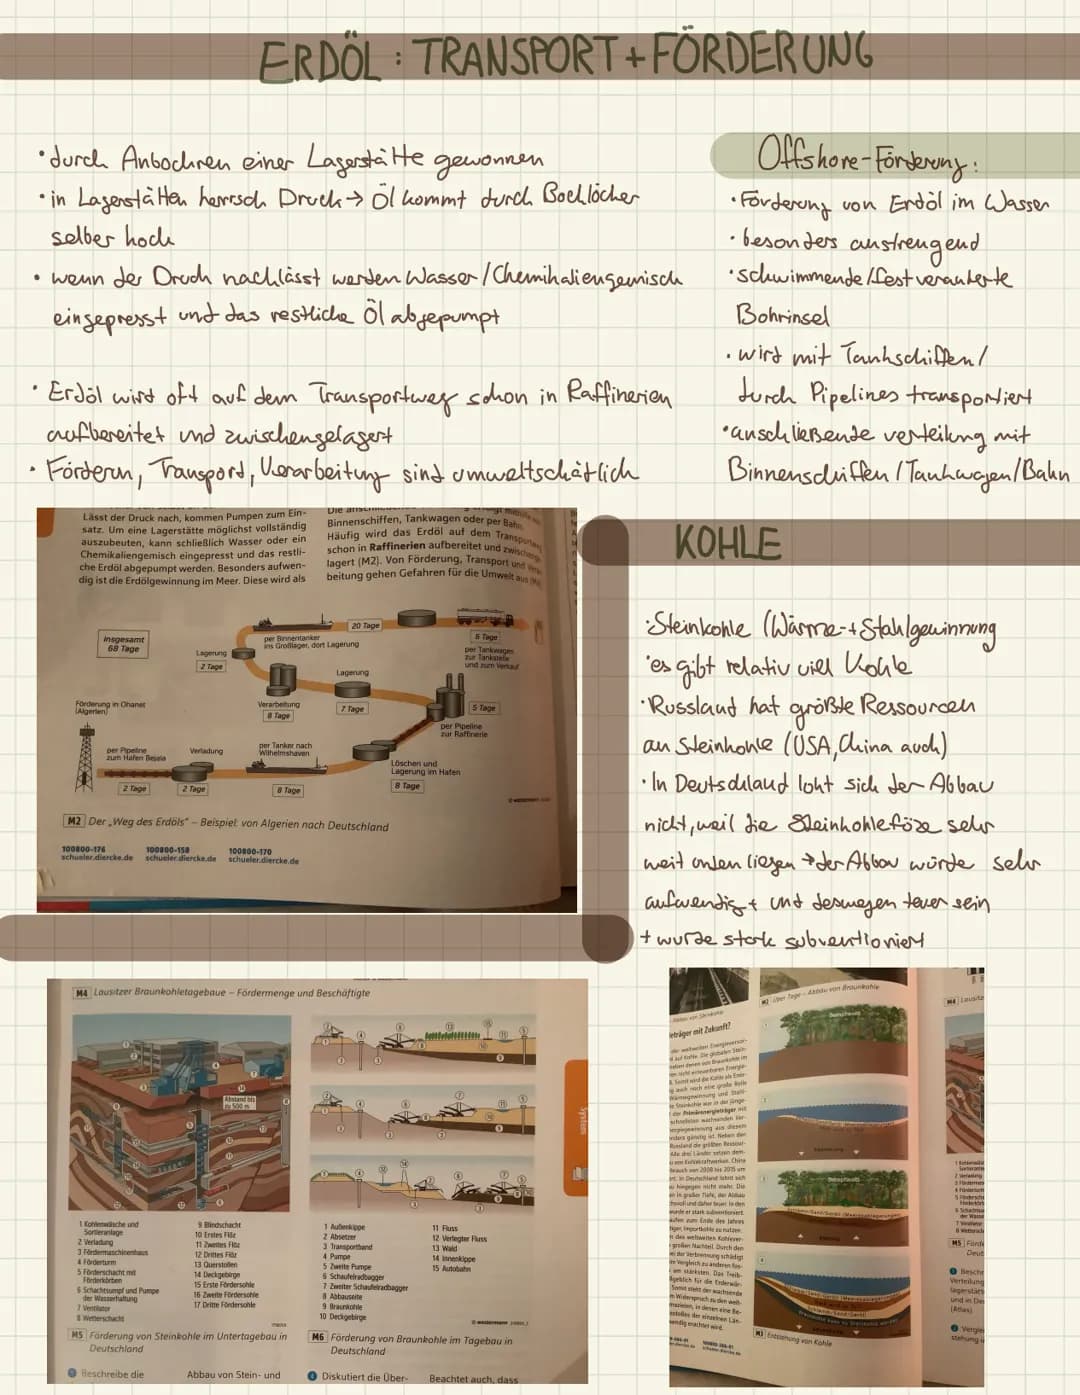 ERDÖL : TRANSPORT + FÖRDERUNG
• durch Anbohren einer Lagerstätte gewonnen
• in Lagerstätten herrsch Druck → Öl kommt durch Bohlöcher
selber hoch
• wenn der Druck nachlässt werden Wasser / Chemikaliengemisch
eingepresst und das restliche Öl abgepumpt
• Erdöl wird oft auf dem Transportweg schon in Raffinerien
aufbereitet und zwischengelagert
• Fördern, Transport, Verarbeitung sind umweltschätlich
Offshore-Förderung:
• Förderung von Erdöl im Wasser
• besonders anstrengend
• schwimmende / fest verankerte
Bohrinsel
• wird mit Tankschiffen /
durch Pipelines transportiert
• anschließende verteilung mit
Binnenschiffen / Tankwagen / Bahn
Lässt der Druck nach, kommen Pumpen zum Ein-
satz. Um eine Lagerstätte möglichst vollständig
auszubeuten, kann schließlich Wasser oder ein
Chemikaliengemisch eingepresst und das restli-
che Erdöl abgepumpt werden. Besonders aufwen-
dig ist die Erdölgewinnung im Meer. Diese wird als
Binnenschiffen, Tankwagen oder per Bahn.
Häufig wird das Erdöl auf dem Transportweg
schon in Raffinerien aufbereitet und zwischenge-
lagert (M2). Von Förderung, Transport und Verar-
beitung gehen Gefahren für die Umwelt aus
insgesamt
68 Tage
Lagerung
2 Tage
per Binnentanker
ins Großlager, dort Lagerung
20 Tage
6 Tage
per Tankwagen
zur Tankstelle
und zum Verkauf
Verarbeitung
8 Tage
Lagerung
7 Tage
5 Tage
per Pipeline
zur Raffinerie
Förderung in Ohanet
(Algerien)
per Pipeline
zum Hafen Bejaia
2 Tage
Verladung
2 Tage
per Tanker nach
Wilhelmshaven
8 Tage
Löschen und
Lagerung im Hafen
8 Tage
© westermann
M2 Der „Weg des Erdöls" – Beispiel von Algerien nach Deutschland
100800-176
schueler.diercke.de
100800-158
schueler.diercke.de
100800-170
schueler.diercke.de
KOHLE
• Steinkohle (Wärme- + Stahlgewinnung
• es gibt relativ viel Kohle
• Russland hat größte Ressourcen
an Steinkohle (USA, China auch)
• In Deutschland loht sich der Abbau
nicht, weil die Steinkohleföze sehr
weit unten liegen → der Abbau würde sehr
aufwendig + und deswegen teuer sein
+ wurde stark subventioniert
M4 Lausitzer Braunkohletagebaue – Fördermenge und Beschäftigte
Abstand bis
zu 500 m
1 Kohlenwäsche und
Sortieranlage
2 Verladung
3 Fördermaschinenhaus
4 Förderturm
5 Förderschacht mit
Förderkörben
6 Schachtsumpf und Pumpe
der Wasserhaltung
7 Ventilator
8 Wetterschacht
9 Blindschacht
10 Erstes Flöz
11 Zweites Flöz
12 Drittes Flöz
13 Querstollen
14 Deckgebirge
15 Erste Fördersohle
16 Zweite Fördersohle
17 Dritte Fördersohle
M5 Förderung von Steinkohle im Untertagebau in
Deutschland
1 Außenkippe
2 Absetzer
3 Transportband
4 Pumpe
5 Zweite Pumpe
6 Schaufelradbagger
7 Zweiter Schaufelradbagger
8 Abbauseite
9 Braunkohle
10 Deckgebirge
11 Fluss
12 Verlegter Fluss
13 Wald
14 Innenkippe
15 Autobahn
© westermann
M6 Förderung von Braunkohle im Tagebau in
Deutschland
System
Beschreibe die
Abbau von Stein- und
Diskutiert die Über-
Beachtet auch, dass
M2 Über Tage – Abbau von Braunkohle
M3 Entstehung von Kohle
M4 Lausitz